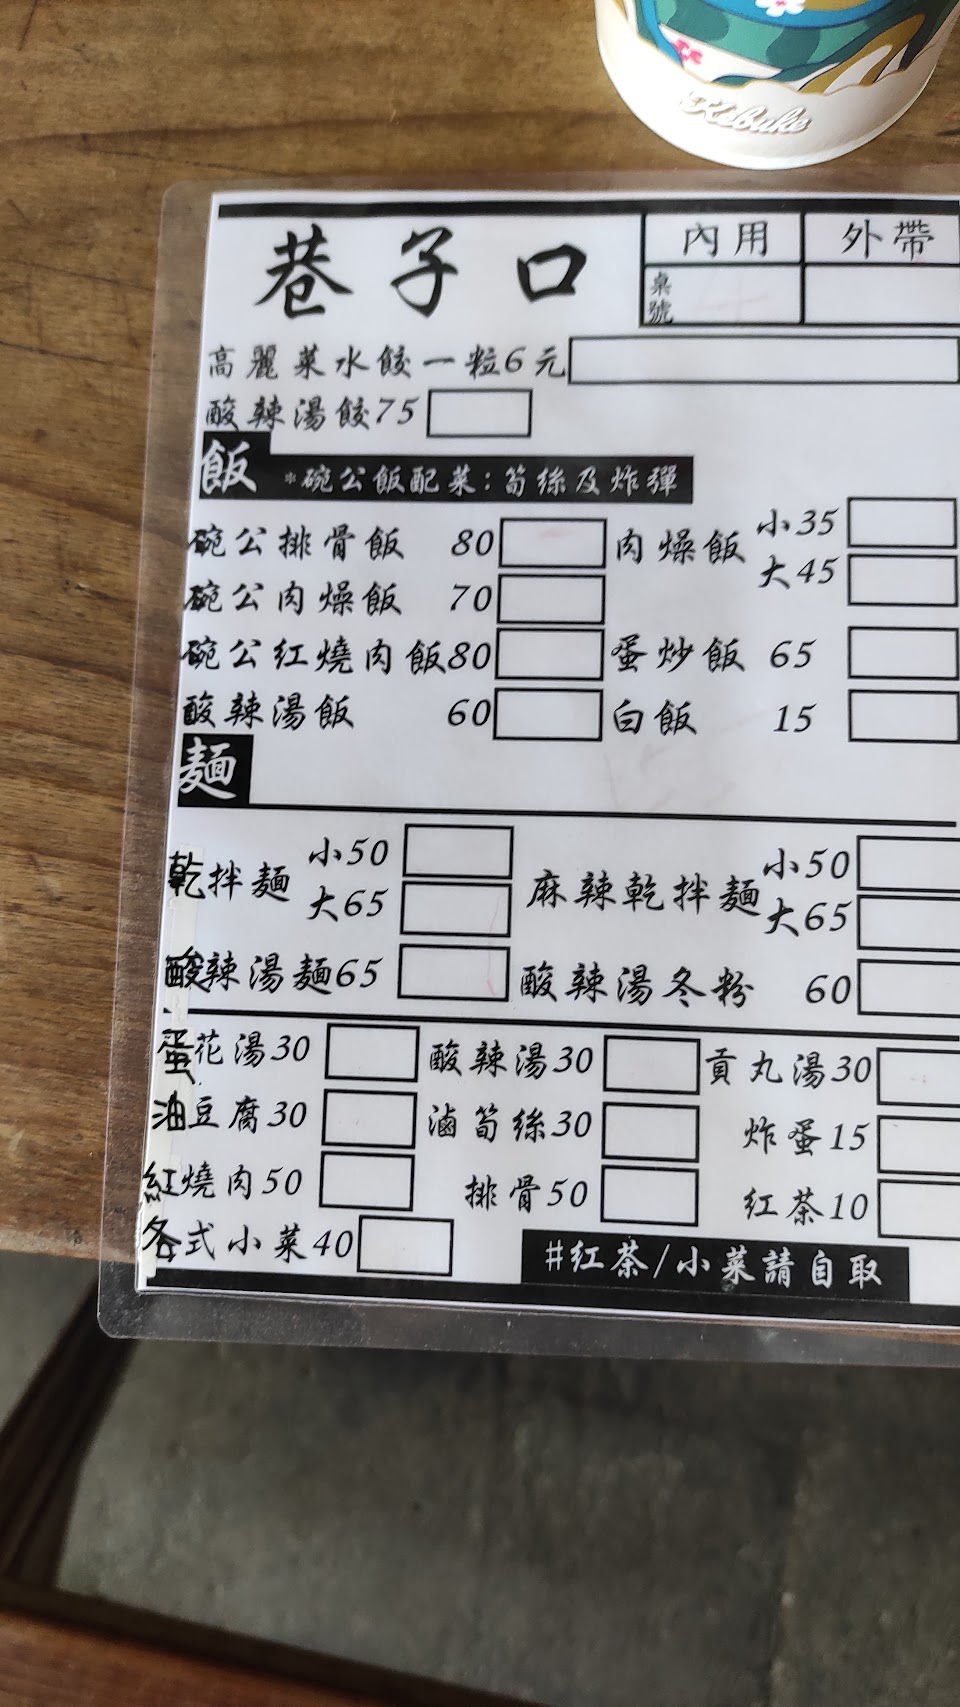 Kebuke
巷子口 內用 外帶
桌號
高麗菜水餃一粒6元
酸辣湯餃75
飯 *碗公飯配菜:筍絲及炸彈
碗公排骨飯 80 肉燥飯 小35
大45
碗公肉燥飯 70
碗公紅燒肉飯80 蛋炒飯 65
酸辣湯飯 60 白飯 15
麵
乾拌麵 小50 麻辣乾拌麵 小50
大65 大65
酸辣湯麵65 酸辣湯冬粉 60
蛋花湯30 酸辣湯30 貢丸湯30
油豆腐30 滷筍絲30 炸蛋15
紅燒肉50 排骨50 紅茶10
各式小菜40 #紅茶/小菜請自取